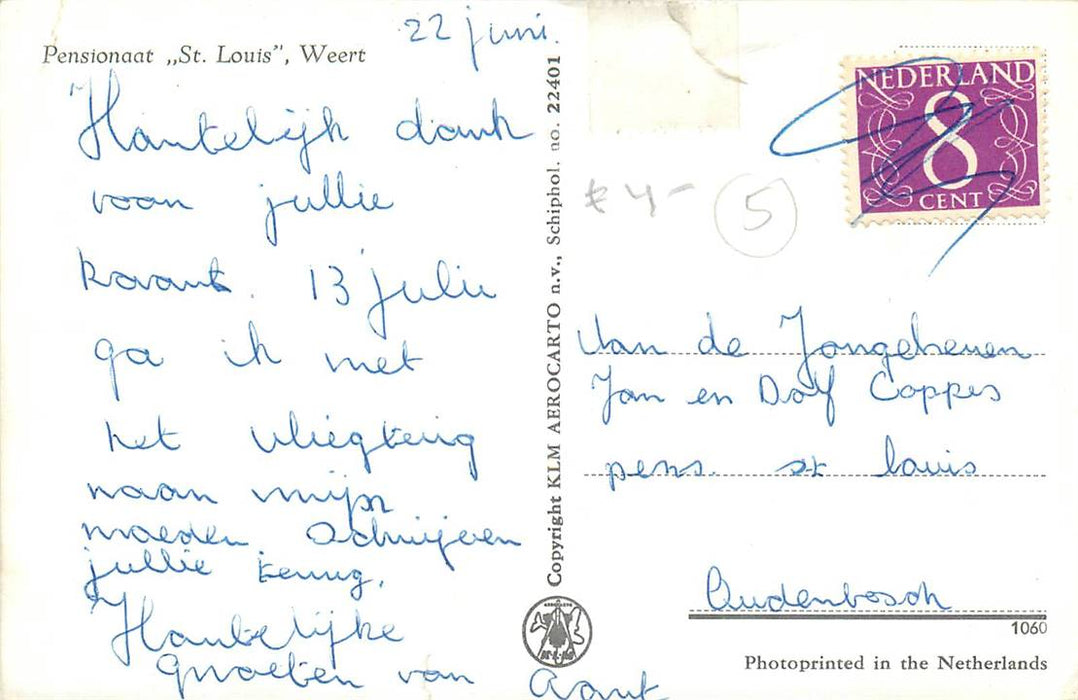 Pensionaat „St. Louis”, Weert
22 juni.
Hartelijk dank
voor jullie
kaart. 13 julie
ga ik met
het vliegteug
naar mijn
moeder. Schrijven
jullie terug.
Hartelijke
groeten van
Copyright KLM AEROCARTO n.v., Schiphol. no. 22401
NEDERLAND
8
CENT
€ 4,-
5
Aan de Jongeheren
Jan en Dolf Coppes
pens. st louis
Oudenbosch
1060
Photoprinted in the Netherlands